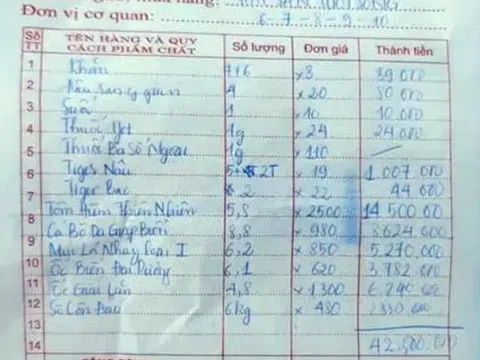 Đơn vị cơ quan: 6-7-8-9-10
Số TT TÊN HÀNG VÀ QUY CÁCH PHẨM CHẤT Số lượng Đơn giá Thành tiền
1 Khăn 7+6 ×3 39.000
2 4 ×20 80.000
3 Suối 1 ×10 10.000
4 Thuốc Jet 1g ×24 24.000
5 Thuốc Ba Số Ngoại 1g ×110
6 Tiger Nâu 2T ×19 1.007.000
7 Tiger Bạc 2 ×22 44.000
8 Tôm Hùm Thiên Nhiên 5,8 ×2500 14.500.000
9 Cá Bò Da Giáp Biển 8,8 ×980 8.624.000
10 Mực Lá Nháy loại I 6,2 ×850 5.270.000
11 Ốc Biển Đại Dương 6,1 ×620 3.782.000
12 Ốc Gai 4,8 ×1300 6.240.000
Sò Côn Đảo 6kg ×480
13
14 42.500.000